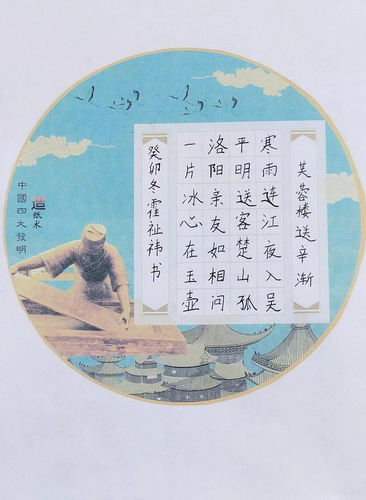 芙蓉楼送辛渐
寒雨连江夜入吴
平明送客楚山孤
洛阳亲友如相问
一片冰心在玉壶
癸卯冬霍祉祎书
造纸术
中國四大發明